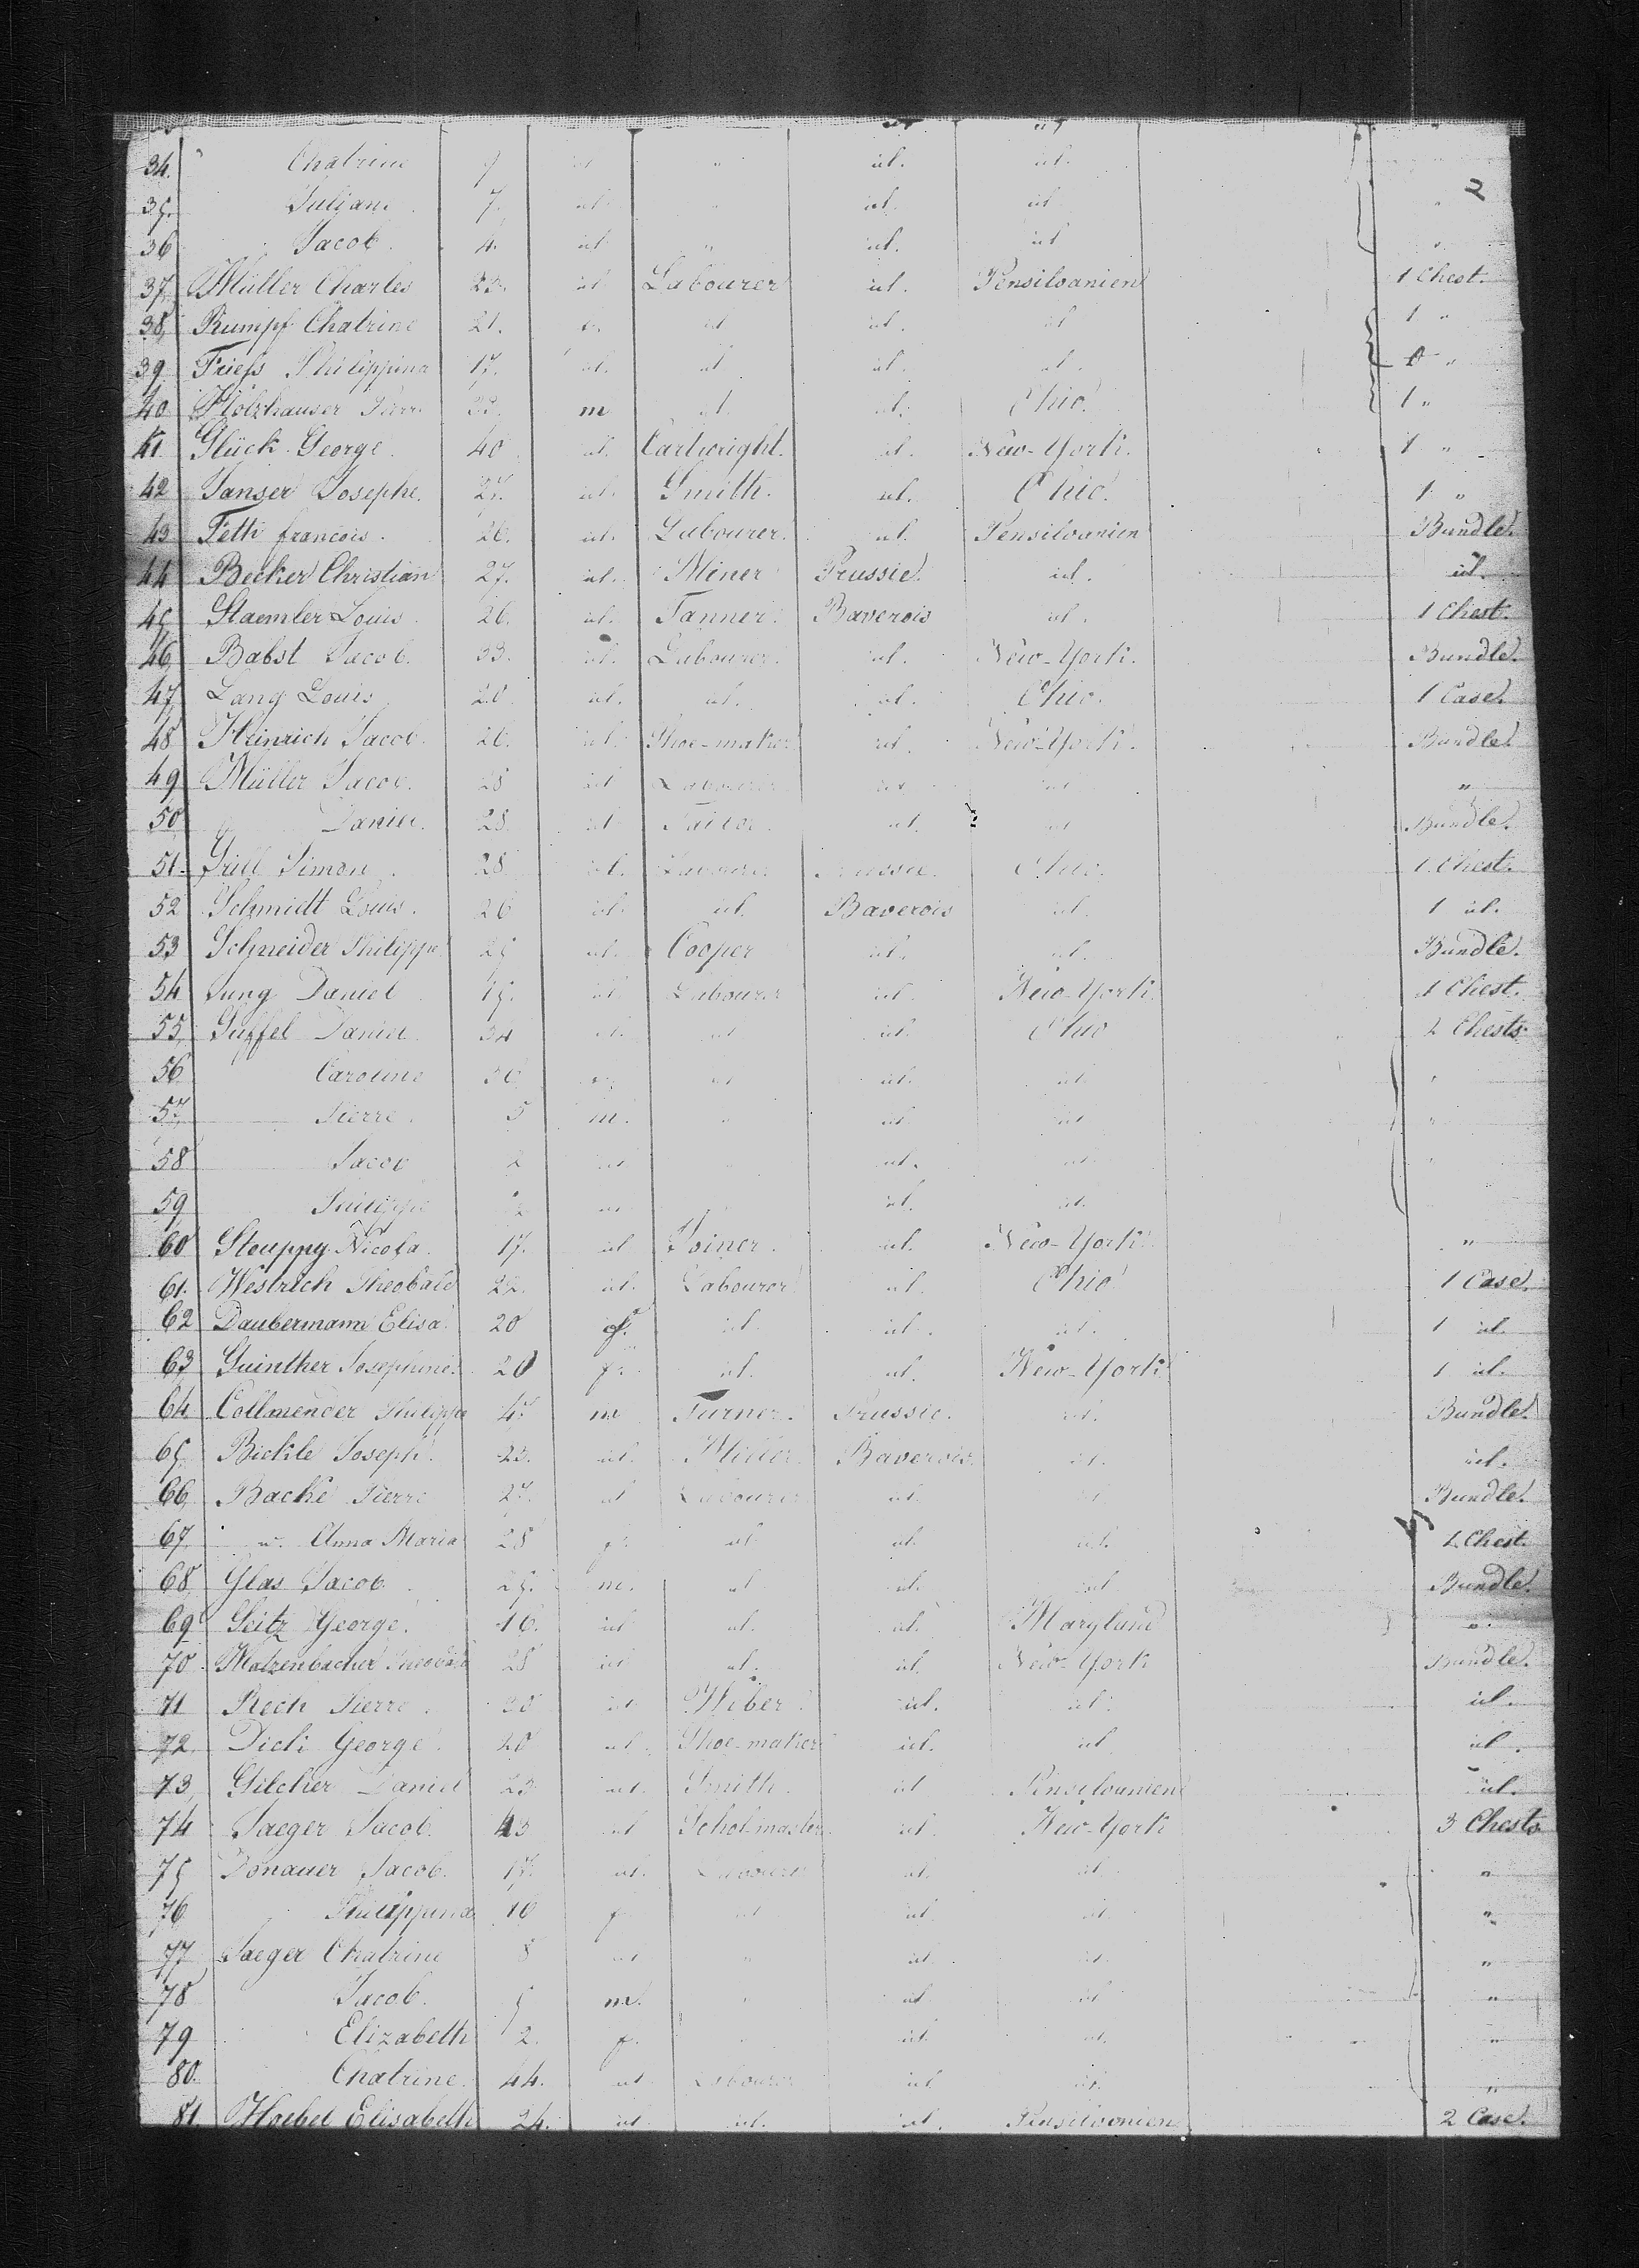 2
34. " Chatrine 9 id " id. id. "
35. Juliane 7. id. " id. id "
36 Jacob. 4. id. " id. id "
37. Müller Charles 23. id Labourer id. Pensilvanien 1 Chest.
38. Rumpf Chatrine 21. id id. id 1 "
39 Friess Philippina 17. id. id id. id. "
40. Holzhauser Pierre 33. m id. id. Ohio. 1 "
41. Glück George. 40 id. Cartwright. id. New-York. 1 "
42 Janser Josephe. 27. id. Smith. id. Ohio. 1 "
43 Fetti francois. 26. id. Labourer. id. Pensilvanien Bundle.
44 Becker Christian 27. id. Miner Prussie. id. id.
45 Staemler Louis. 26. id. Tanner. Baverois id. 1 Chest.
46. Babst Jacob. 33. id. Labourer. id. New-York. Bundle.
47 Lang Louis 20 id. id. id. Ohio. 1 Case.
48 Heinrich Jacob. 26. id. Shoe-maker id. New-York. Bundle.
49 Müller Jacob. 28 id Labourer id id "
50 Daniel. 28. id Tailor. id. id Bundle.
51. Grill Simon. 28 id. Labourer Prussie. Ohio. 1 Chest.
52 Schmidt Louis. 26 id. id. Baverois id. 1 id.
53 Schneider Philippe 25 id. Cooper id. id. Bundle.
54 Jung Daniel 19. id. Labourer id. New-York. 1 Chest.
55. Guffel Daniel 34 id. id id. Ohio 2 Chests.
56 Caroline 30 id id. id. "
57. Pierre. 5 m. " id id "
58 Jacob 2 id " id. id. "
59 Philippe id. id.
60 Stouppy Nicola. 17. id Joiner. id. New-York. "
61. Westrich Theobald 22. id. Labourer id. Ohio 1 Case.
62 Daubermann Elisa. 20 f. id. id. id. 1 id.
63 Guinther Josephine. 20 f. id. id. New-York 1 id.
64 Collmender Philippe 47 m Turner. Prussie. id. Bundle.
65 Bickle Joseph. 23. id. Miller. Baverois. id. id.
66 Backé Pierre 27. id Labourer id. id Bundle.
67. " Anna Maria 28 f. id. id. id. 1 Chest.
68 Glas Jacob. 25. m. id id. id Bundle.
69 Seitz George. 16. id id. id. Maryland "
70 Matzenbacher Theobald 28 id id. id. New-York Bundle.
71 Rech Pierre. 30 id Wiber. id. id. id.
72. Dick George. 20 id. Shoe-maker id. id id.
73, Gilcher Daniel 23 id. Smith. id Pensilvanien id.
74 Jaeger Jacob. 43 id Schoolmaster id. New-York 3 Chests
75 Donauer Jacob. 17. id. Labourer id. id. "
76 Philippina 10 f id id id "
77 Jaeger Chatrine 8 id " id id. "
78 Jacob. 5 m. " id id "
79 Elizabeth 2. f. " id. id. "
80. Chatrine. 44. id Labourer id. id. "
81. Haebel Elisabeth 24. id id. id. Pensilvonien 2 Case.